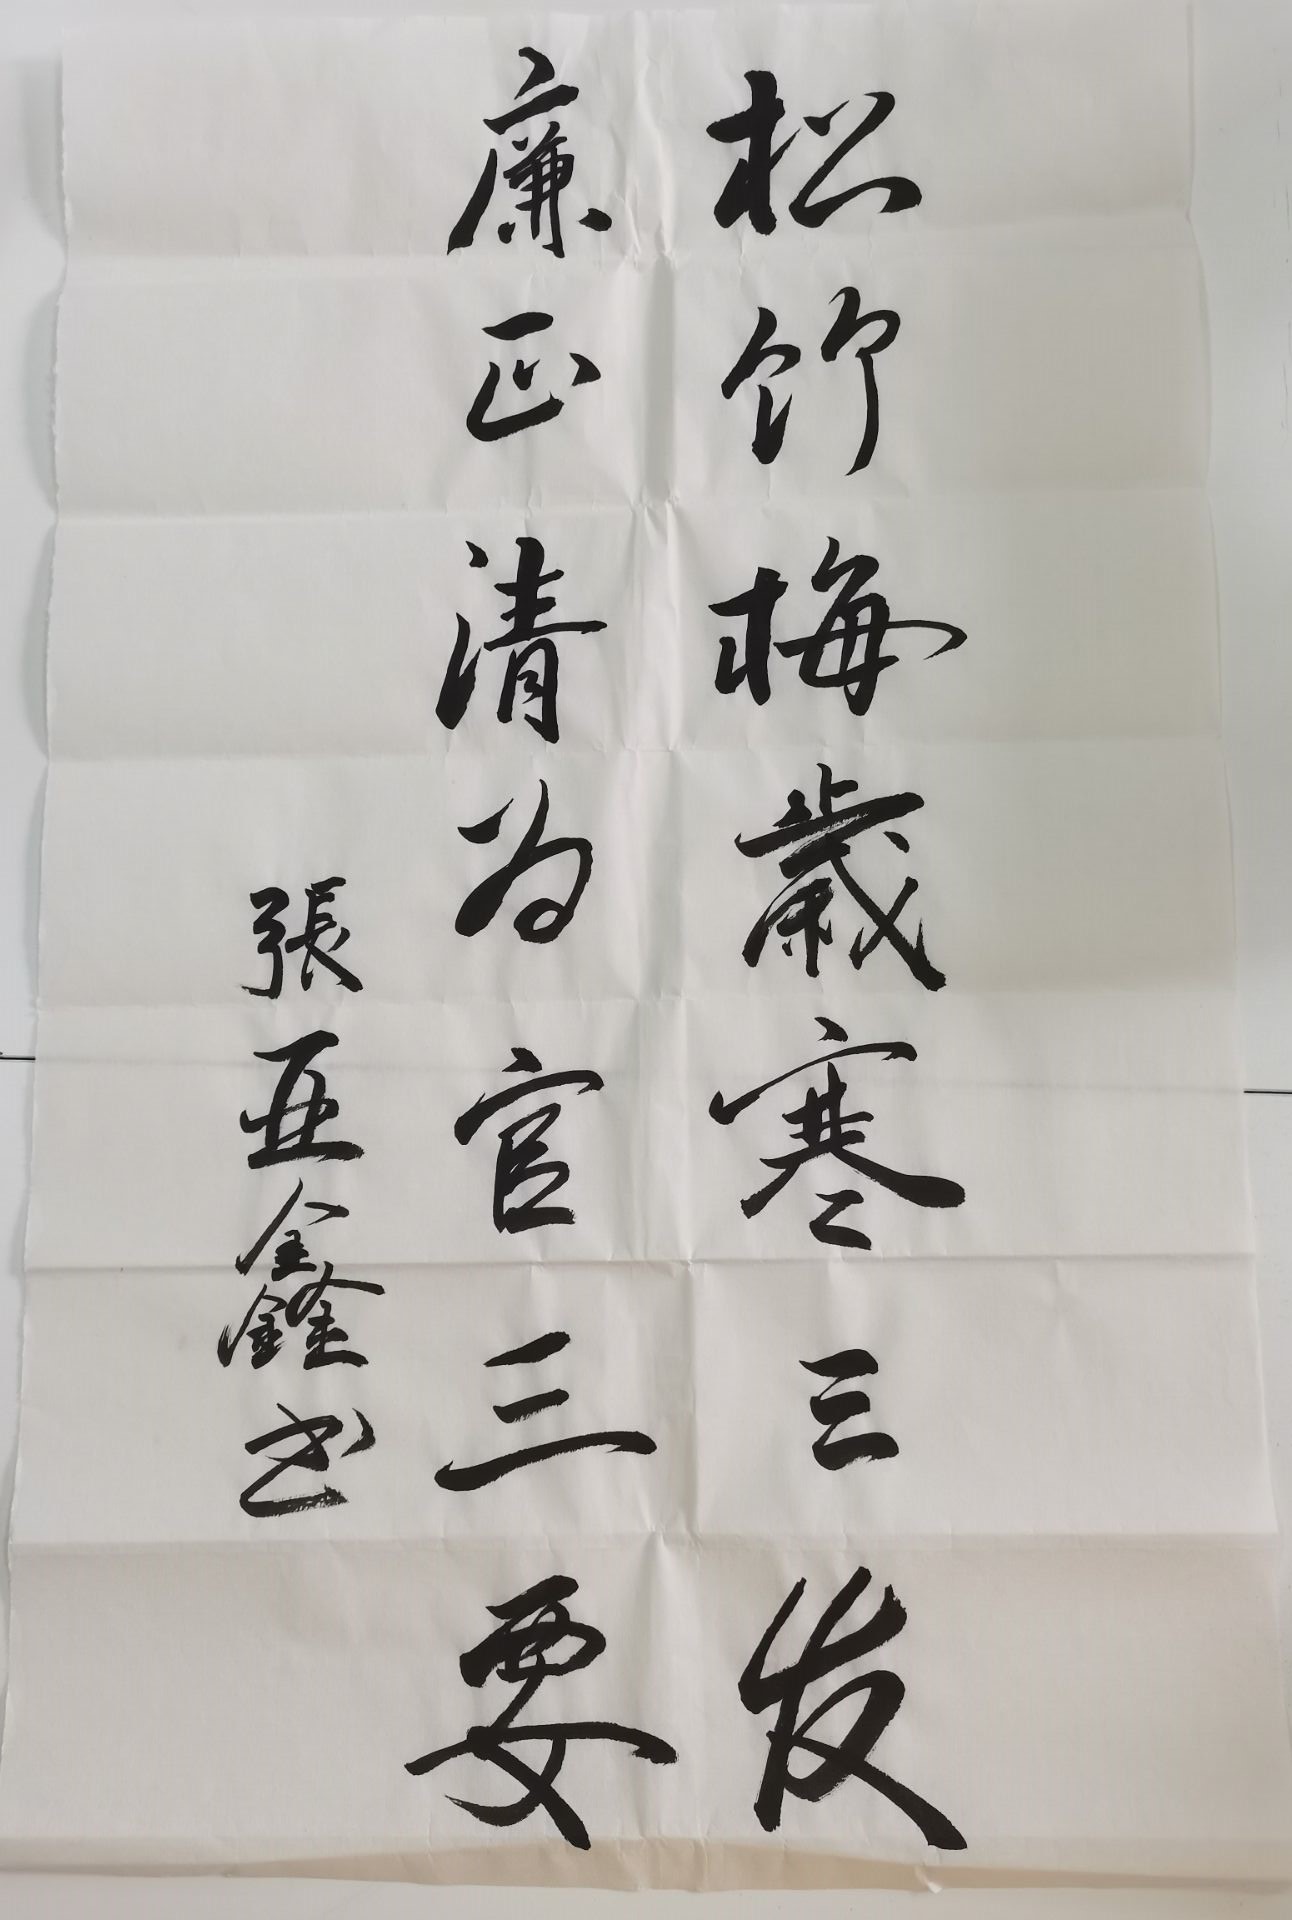 松竹梅歲寒三友
廉正清为官三要
張亚鑫书